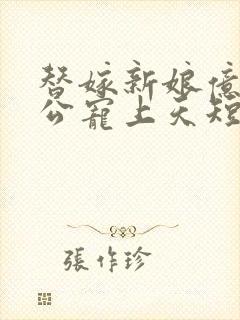 替嫁新娘億
公寵上天短
張作珍